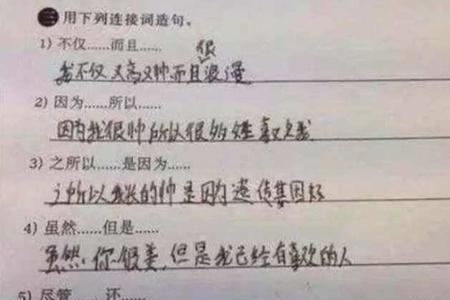 三 用下列连接词造句。
1) 不仅……而且……
我不仅又高又帅而且很浪漫
2) 因为……所以……
因为我很帅所以很多女娃喜欢我
3) 之所以……是因为……
之所以我长的帅是因为遗传基因好
4) 虽然……但是……
虽然你很美,但是我已经有喜欢的人
5) 尽管……还……